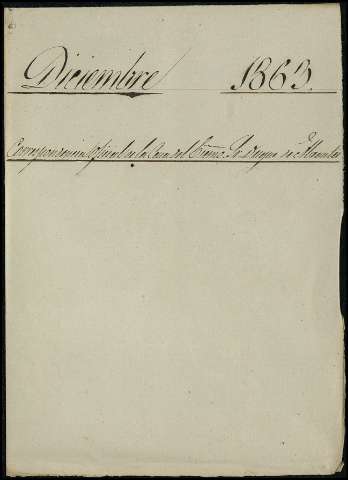 Diciembre 1863.
Correspondencia Oficial de la Casa del Excmo. Sr. Duque de